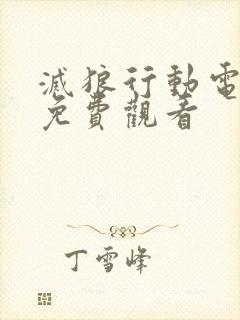 滅狼行動電
免費觀看
丁雪峰